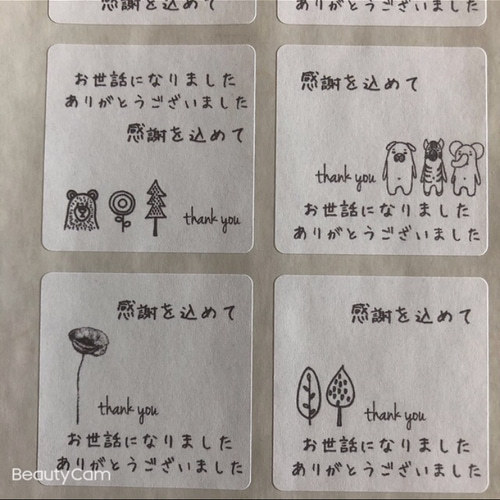 感謝を込めて
ありがとうございました
お世話になりました
ありがとうございました
感謝を込めて
thank you
感謝を込めて
thank you
お世話になりました
ありがとうございました
感謝を込めて
thank you
お世話になりました
ありがとうございました
感謝を込めて
thank you
お世話になりました
ありがとうございました
BeautyCam